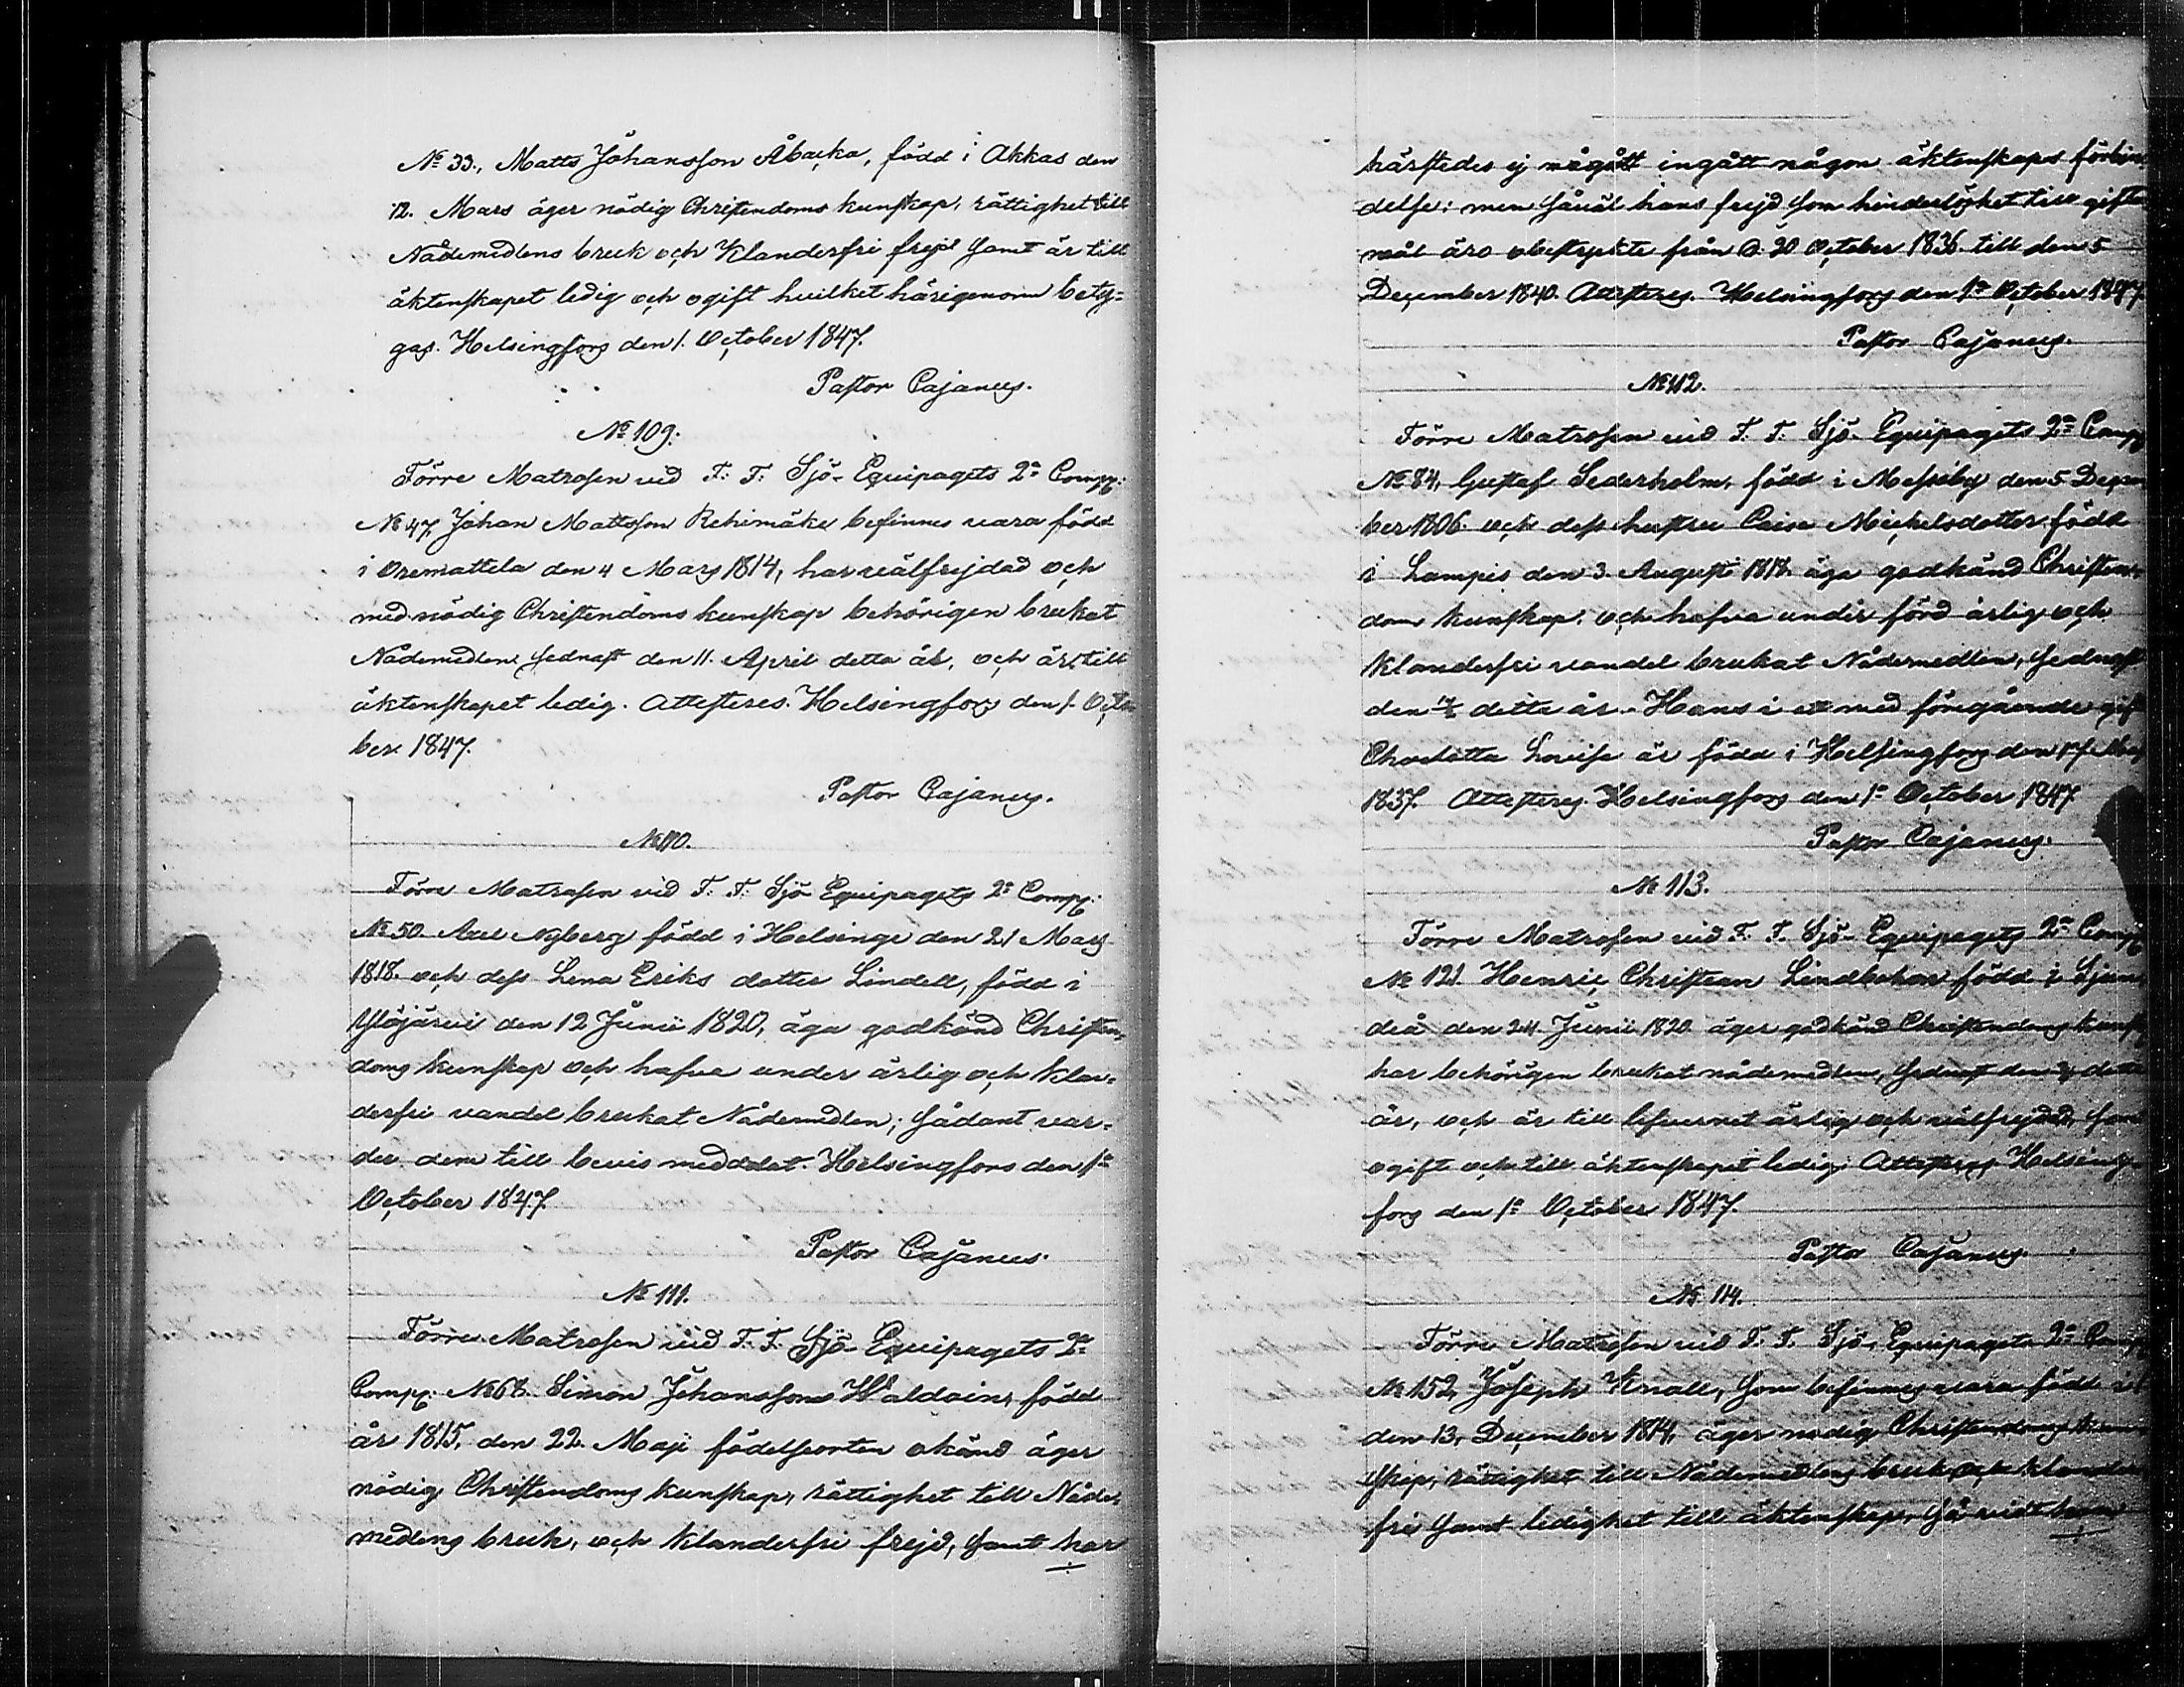 No 33., Matts Johansson Åbacka, född i Akkas den
12. Mars äger nödig Christendoms kunskap, rättighet till
Nådemedlens bruk och Klanderfri frejd samt är till
äktenskapet ledig och ogift hvilket härigenom bety-
gas. Helsingfors den 1. October 1847.
Pastor Cajanus.
No 109.
Förre Matrosen vid F. F. Sjö-Equipagets 2a Comp:
No 47, Johan Mattsson Rehimäki befinnes vara född
i Oremattila den 4 Mars 1814, har välfrejdad och
med nödig Christendoms kunskap behörigen brukat
Nådemedlen sednast den 11. April detta år, och är till
äktenskapet ledig. Attesteres. Helsingfors den 1. Octo
ber 1847.
Pastor Cajanus.
No 110.
Förre Matrosen vid F. F. Sjö Equipagets 2a Comp:
No 50. Axel Nyberg född i Helsinge den 21 Mars
1818. och dess Lena Eriks dotter Lindell, född i
Ylöjärvi den 12 Junii 1820, äga godkänd Christen-
doms kunskap och hafva under ärlig och klan-
derfri vandel brukat Nådemedlen; sådant var-
der dem till bevis meddelat. Helsingfors den 1a
October 1847.
Pastor Cajanus.
No 111.
Förre Matrosen vid F. F. Sjö-Equipagets 2a
Comp: No 68. Simon Johansson Waldain, född
år 1815, den 22. Maji födelseorten okänd äger
nödig Christendoms kunskap, rättighet till Nåde-
medlens bruk, och klanderfri frejd, samt har
härstedes ej något ingått någon äktenskaps förbin
delse: men såväl hans frejd som hinderlöshet till gifte
mål äro obestyrkte från d. 30 October 1836. till den 5
December 1840. Attesteres. Helsingfors den 1a October 1847.
Pastor Cajanus.
No 112.
Förre Matrosen vid F. F. Sjö-Equipagets 2a Comp
No 84, Gustaf Sederholm, född i Messuby den 5 Decem
ber 1806. och dess hustru Caisa Michelsdotter född
i Lampis den 3. Augusti 1818. äga godkänd Christen-
doms kunskap. och hafva under förd ärlig och
klanderfri vandel brukat Nådemedlen, sednast
den detta år. Hans i ett med föregående gift
Charlotta Lovisa är född i Helsingfors den
1837. Attesteres Helsingfors den 1a October 1847
Pastor Cajanus.
No 113.
Förre Matrosen vid F. F. Sjö-Equipagets 2a Comp
No 121. Henric Christian Lindbohm född i Sjun
deå den 24 Junii 1820 äger godkänd Christendoms kunsk
har behörigen brukat nådemedlen, sednast den detta
år, och är till lefvernet ärlig och välfrejdad, samt
ogift och till äktenskapet ledig. Attesteres Helsing-
fors den 1a October 1847.
Pastor Cajanus
No 114.
Förre Matrosen vid F. F. Sjö-Equipagets 2a Comp
No 152, Joseph Knall, som befinnes vara född
den 13, December 1814, äger nödig Christendoms kun
skap, rättighet till Nådemedlens bruk och klander
fri samt ledighet till äktenskap, så vidt hans